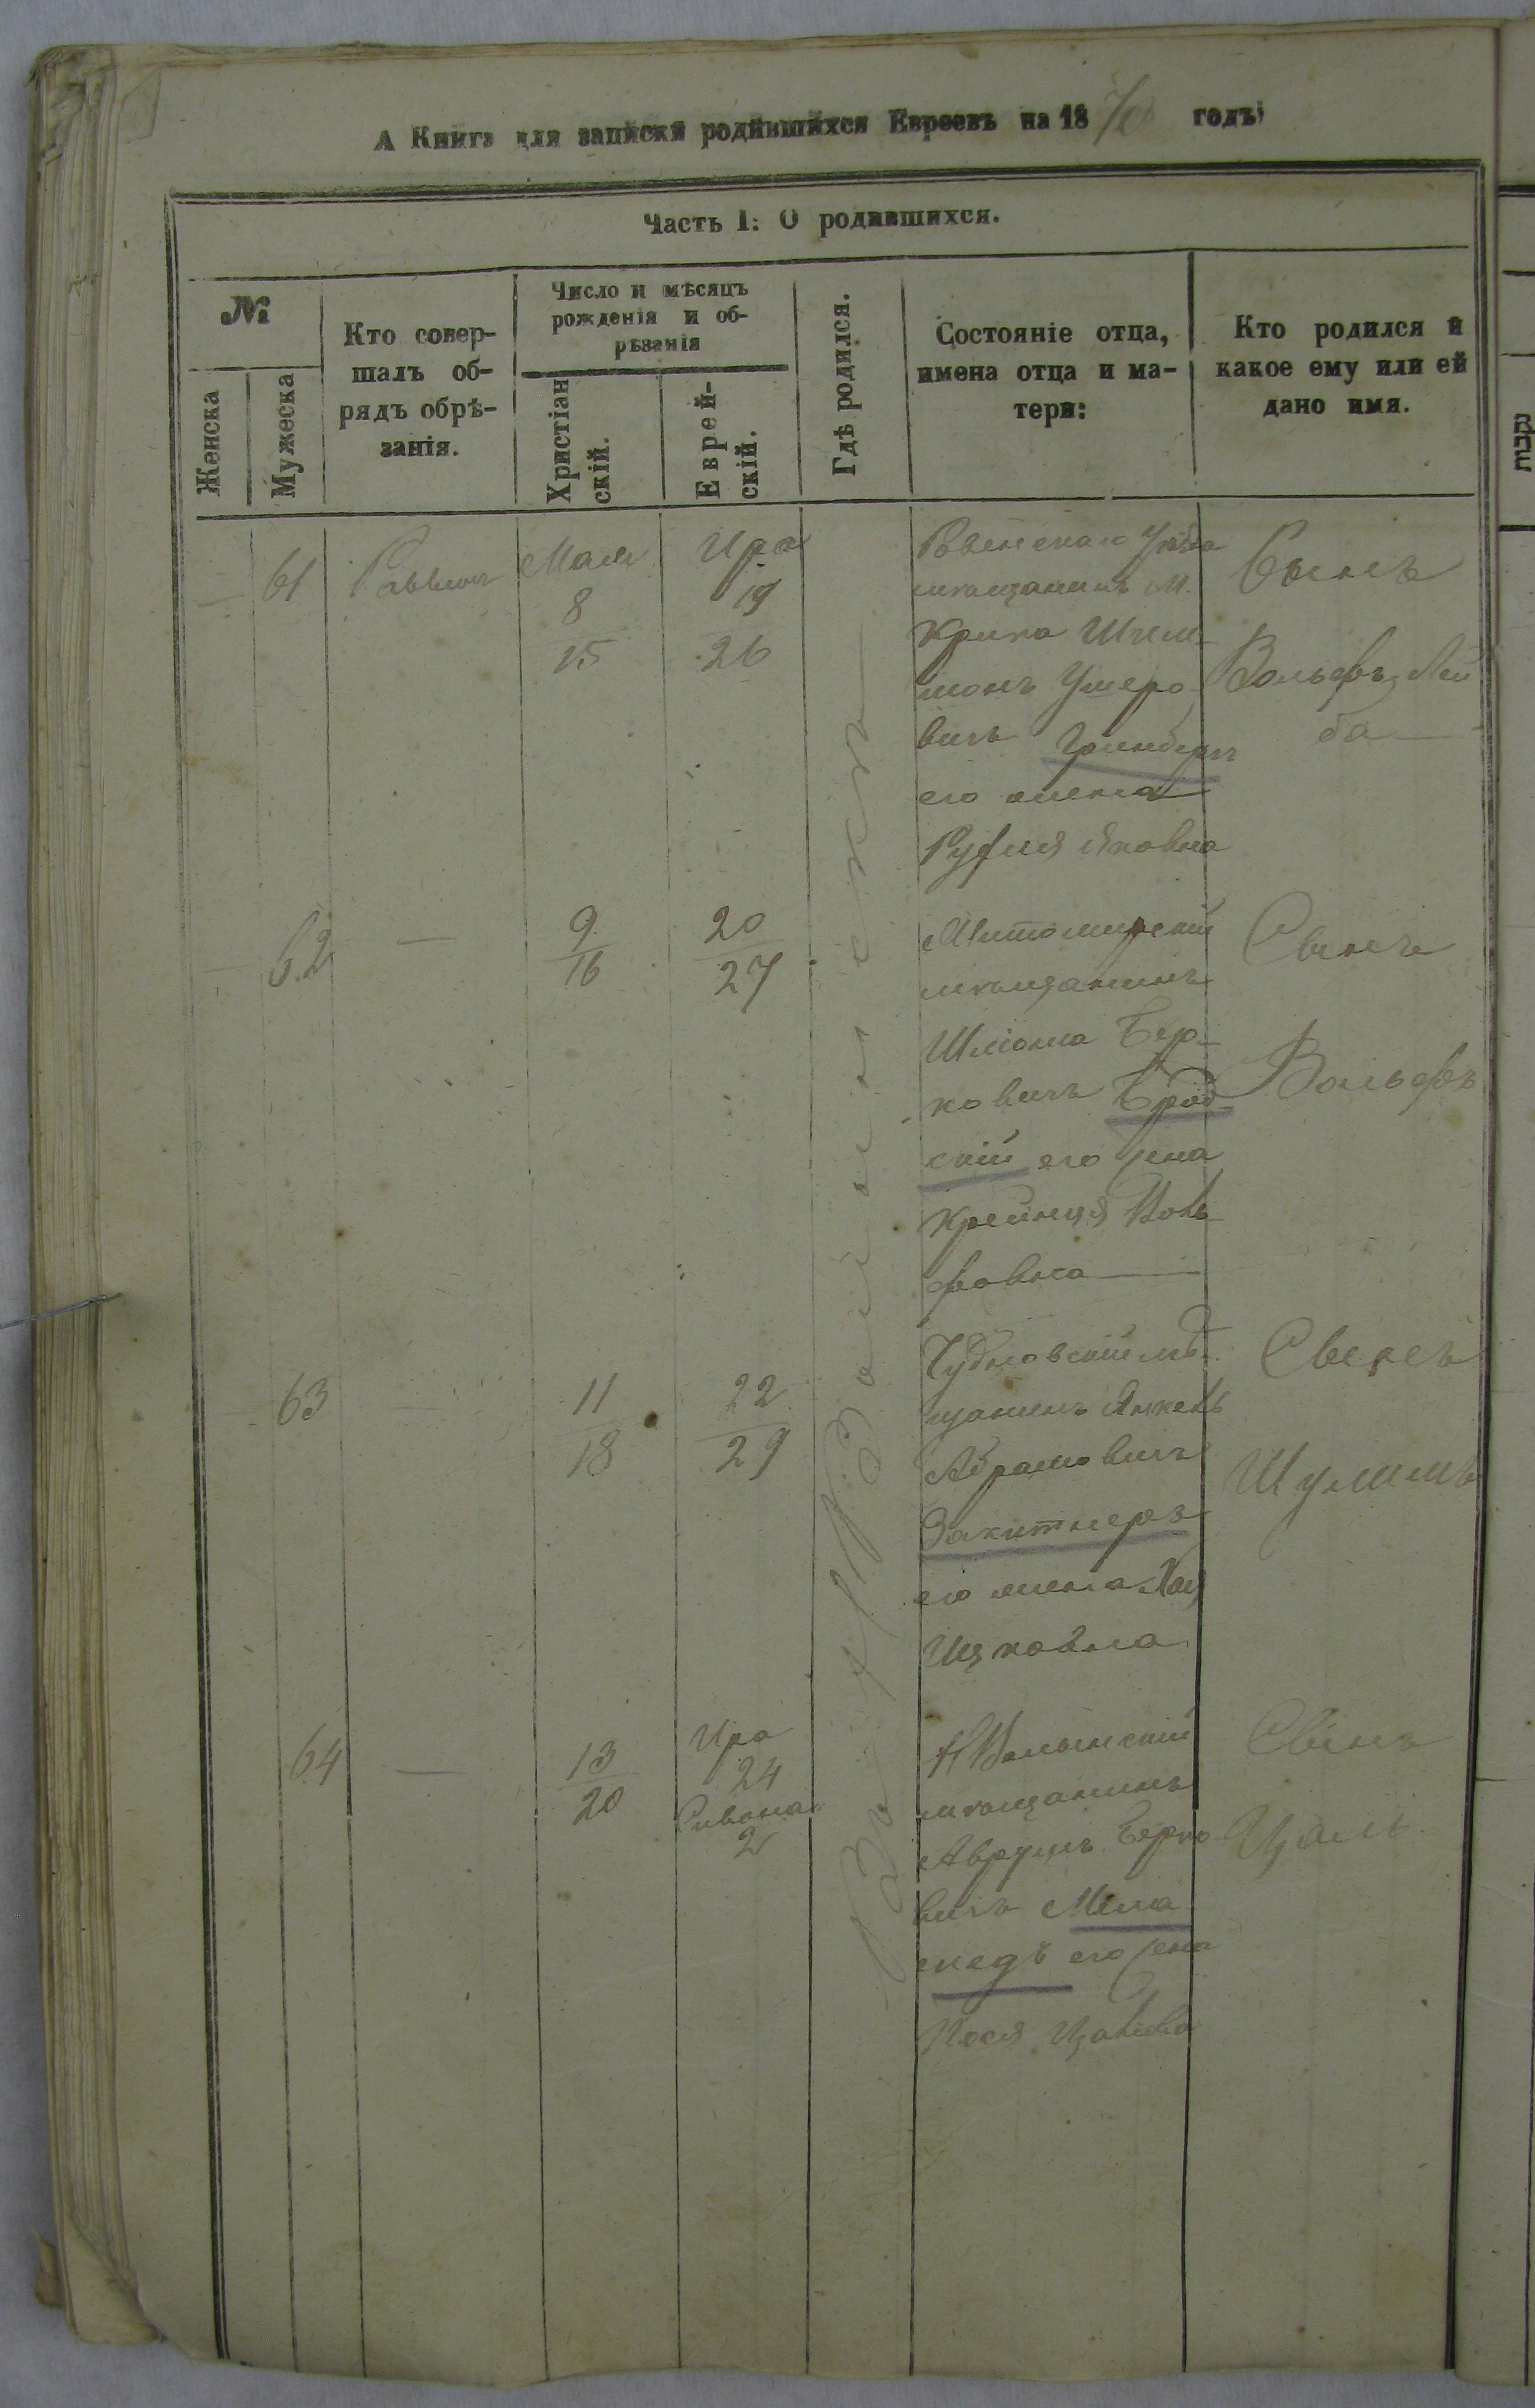 А Книга для записки родившихся Евреевъ на 1870 годъ
Часть I: О родившихся.
№
Женска
Мужеска
Кто совер-
шалъ об-
рядъ обрѣ-
занія.
Число и мѣсяцъ
рожденія и об-
рѣзанія
Христіан
скій.
Еврей-
скій.
Гдѣ родился.
Состояніе отца,
имена отца и ма-
тери:
Кто родился и
какое ему или ей
дано имя.
נקבות
61
Раввинъ
Мая
8
15
Ира
19
26
Ровенскаго Уѣзда
мѣщанинъ М.
Умеро
вичъ Гринберг
его жена
Руфля Яковна
Сынъ
Вольфъ Лей
ба
62
—
9
16
20
27
Житомирскій
мѣщанинъ
Шліома Бер-
ковичъ Брод
скій его жена
Крейнця Воль
фовна
Сынъ
Вольфъ
63
—
11
18
22
29
Чудновскій мѣ
щанинъ Янкель
Абрамовичъ
Закитнеръ
его жена Хая
Ицковна
Сынъ
Шулимъ
64
—
13
20
Ира
24
Сивона
2
Н Волынскій
мѣщанинъ
Аврумъ Берко
вичъ Мела
медъ его жена
Сынъ
Цаль